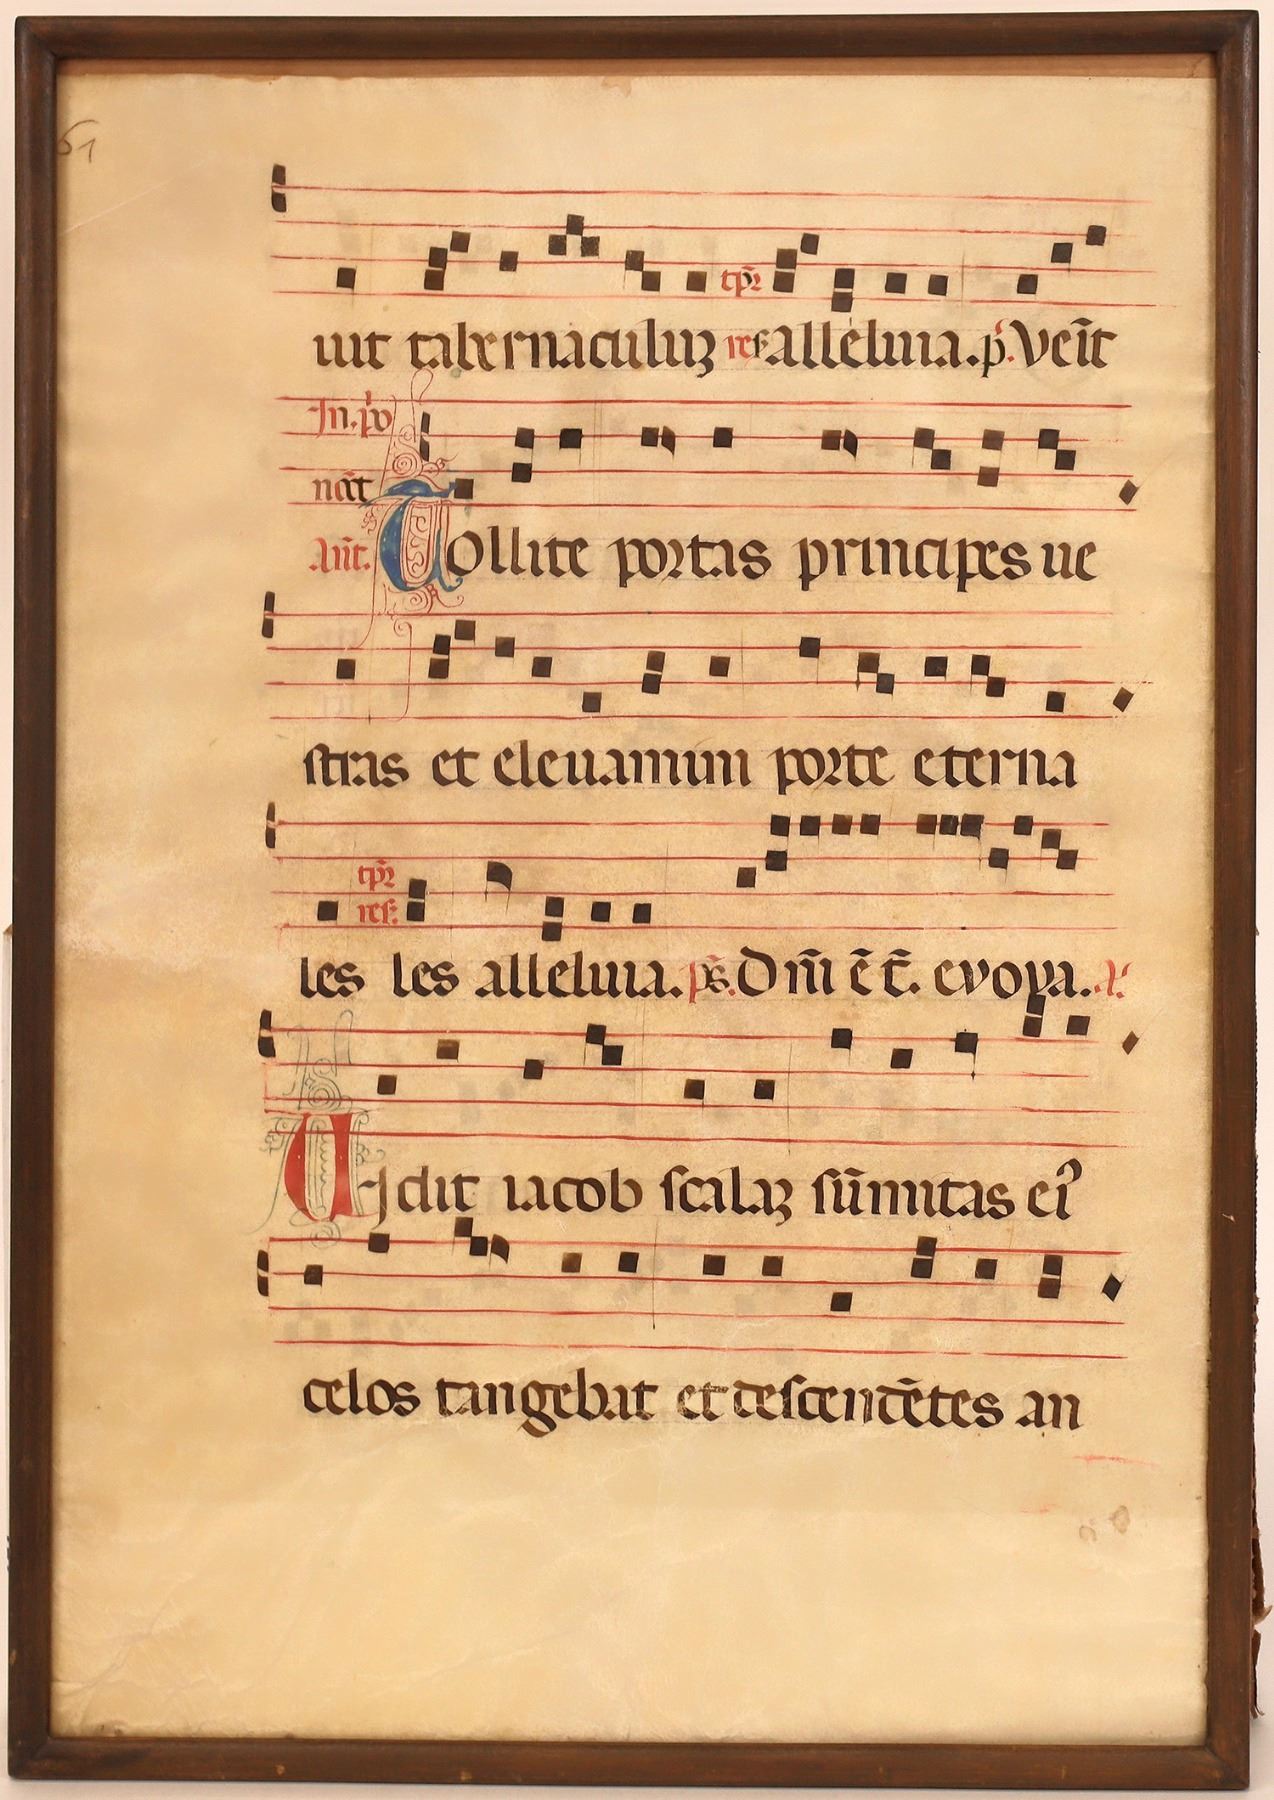 51
tp̄2
uit tabernaculuʒ resꝭ alleluia. p̄. Veīt
In. p̄o
nc̄t
Ant. Tollite portas principes ue
stras et eleuamini porte eterna
tp̄2
res.
les les alleluia. ps̄. Dn̄i ē t̄. evovａ. A.
Uidit iacob scalaʒ sūmitas eiꝰ
celos tangebat et descendētes an